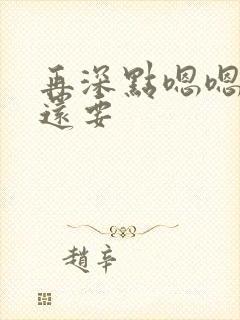 再深點嗯嗯
還要
趙辛